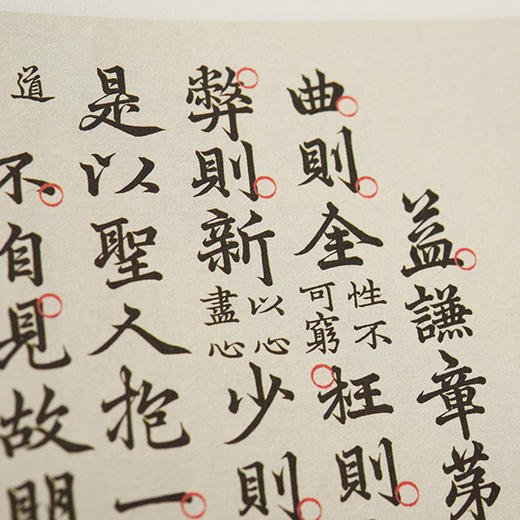 益謙章苐
曲則全性不可窮枉則
弊則新以心盡心少則
是以聖人抱一
道不自見故明